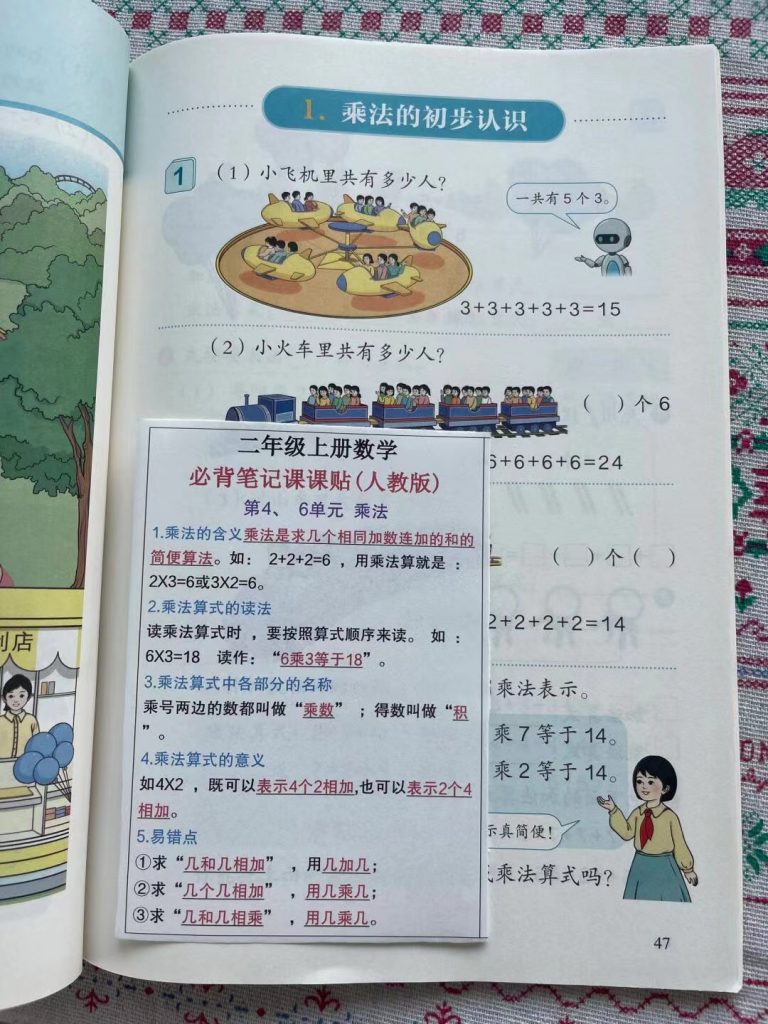 1. 乘法的初步认识
1
（1）小飞机里共有多少人？
一共有5个3。
3+3+3+3+3=15
（2）小火车里共有多少人？
（ ）个6
6+6+6+6=24
（ ）个（ ）
2+2+2+2=14
乘法表示。
乘7等于14。
乘2等于14。
示真简便！
乘法算式吗？
47
店
二年级上册数学
必背笔记课课贴(人教版)
第4、 6单元 乘法
1.乘法的含义乘法是求几个相同加数连加的和的
简便算法。如： 2+2+2=6 ，用乘法算就是 ：
2X3=6或3X2=6。
2.乘法算式的读法
读乘法算式时 ，要按照算式顺序来读。 如 ：
6X3=18 读作：“6乘3等于18”。
3.乘法算式中各部分的名称
乘号两边的数都叫做“乘数” ；得数叫做“积
”。
4.乘法算式的意义
如4X2 ，既可以表示4个2相加,也可以表示2个4
相加。
5.易错点
①求“几和几相加” ，用几加几；
②求“几个几相加” ，用几乘几；
③求“几和几相乘” ，用几乘几。